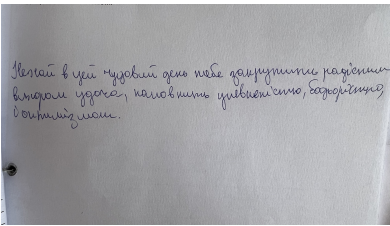 Нехай в цей чудовий день тебе закрутить радісним
вихором удача, наповнить упевненістю, бадьорістю,
і оптимізмом.